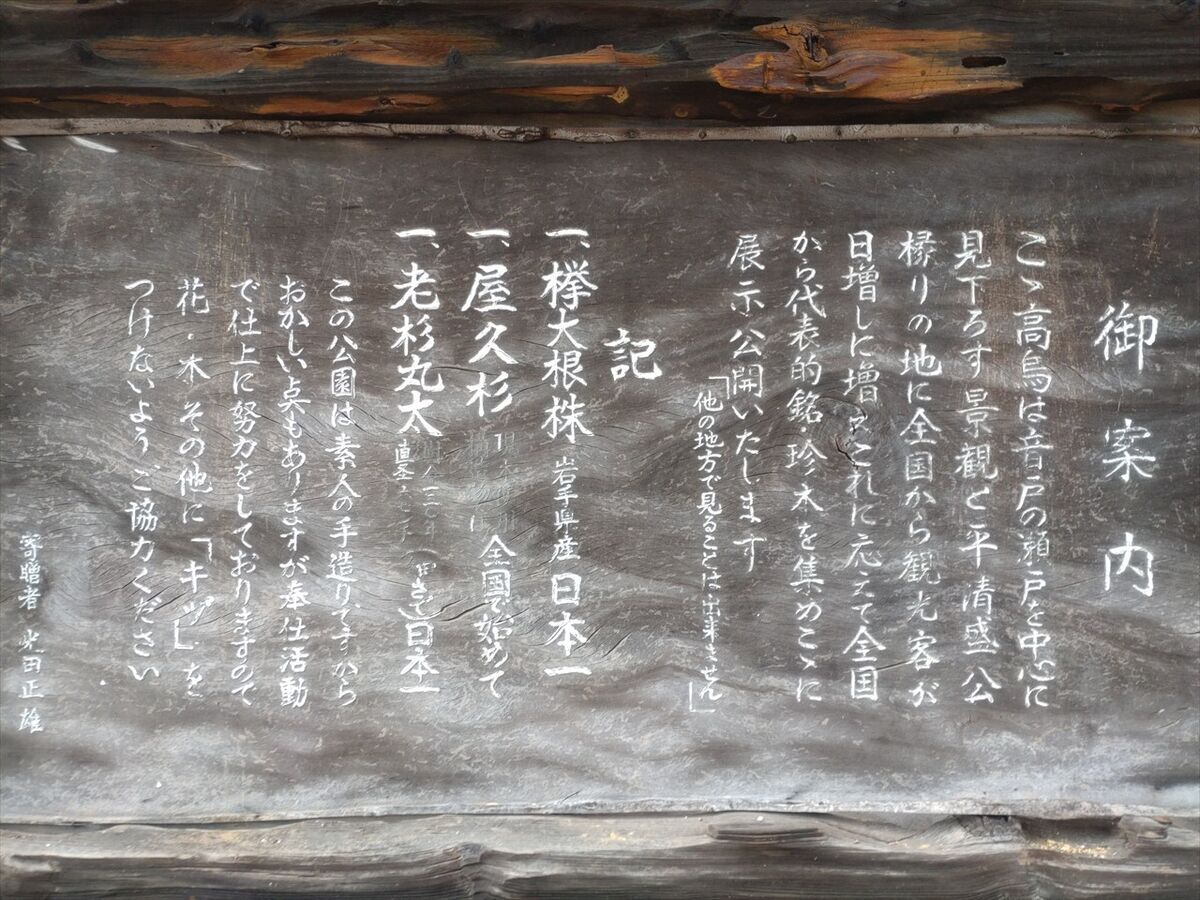 御案内
こゝ高烏は音戸の瀬戸を中心に
見下ろす景観と平清盛公
縁りの地に全国から観光客が
日増しに増えこれに応えて全国
から代表的銘・珍木を集めこゝに
展示公開いたします
「他の地方で見ることは出来ません」
記
一、欅大根株 岩手県産 日本一
一、屋久杉 は 全国で始めて
一、老杉丸太 直径 日本一
この公園は素人の手造りですから
おかしい点もありますが奉仕活動
で仕上に努力をしておりますので
花・木 その他に「キヅ」を
つけないようご協力ください
寄贈者 光田正雄